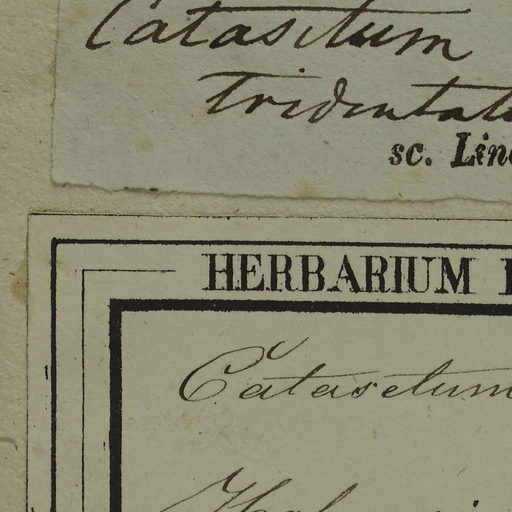 Catasetum
tridentat
sc. Lin
HERBARIUM
Catasetum